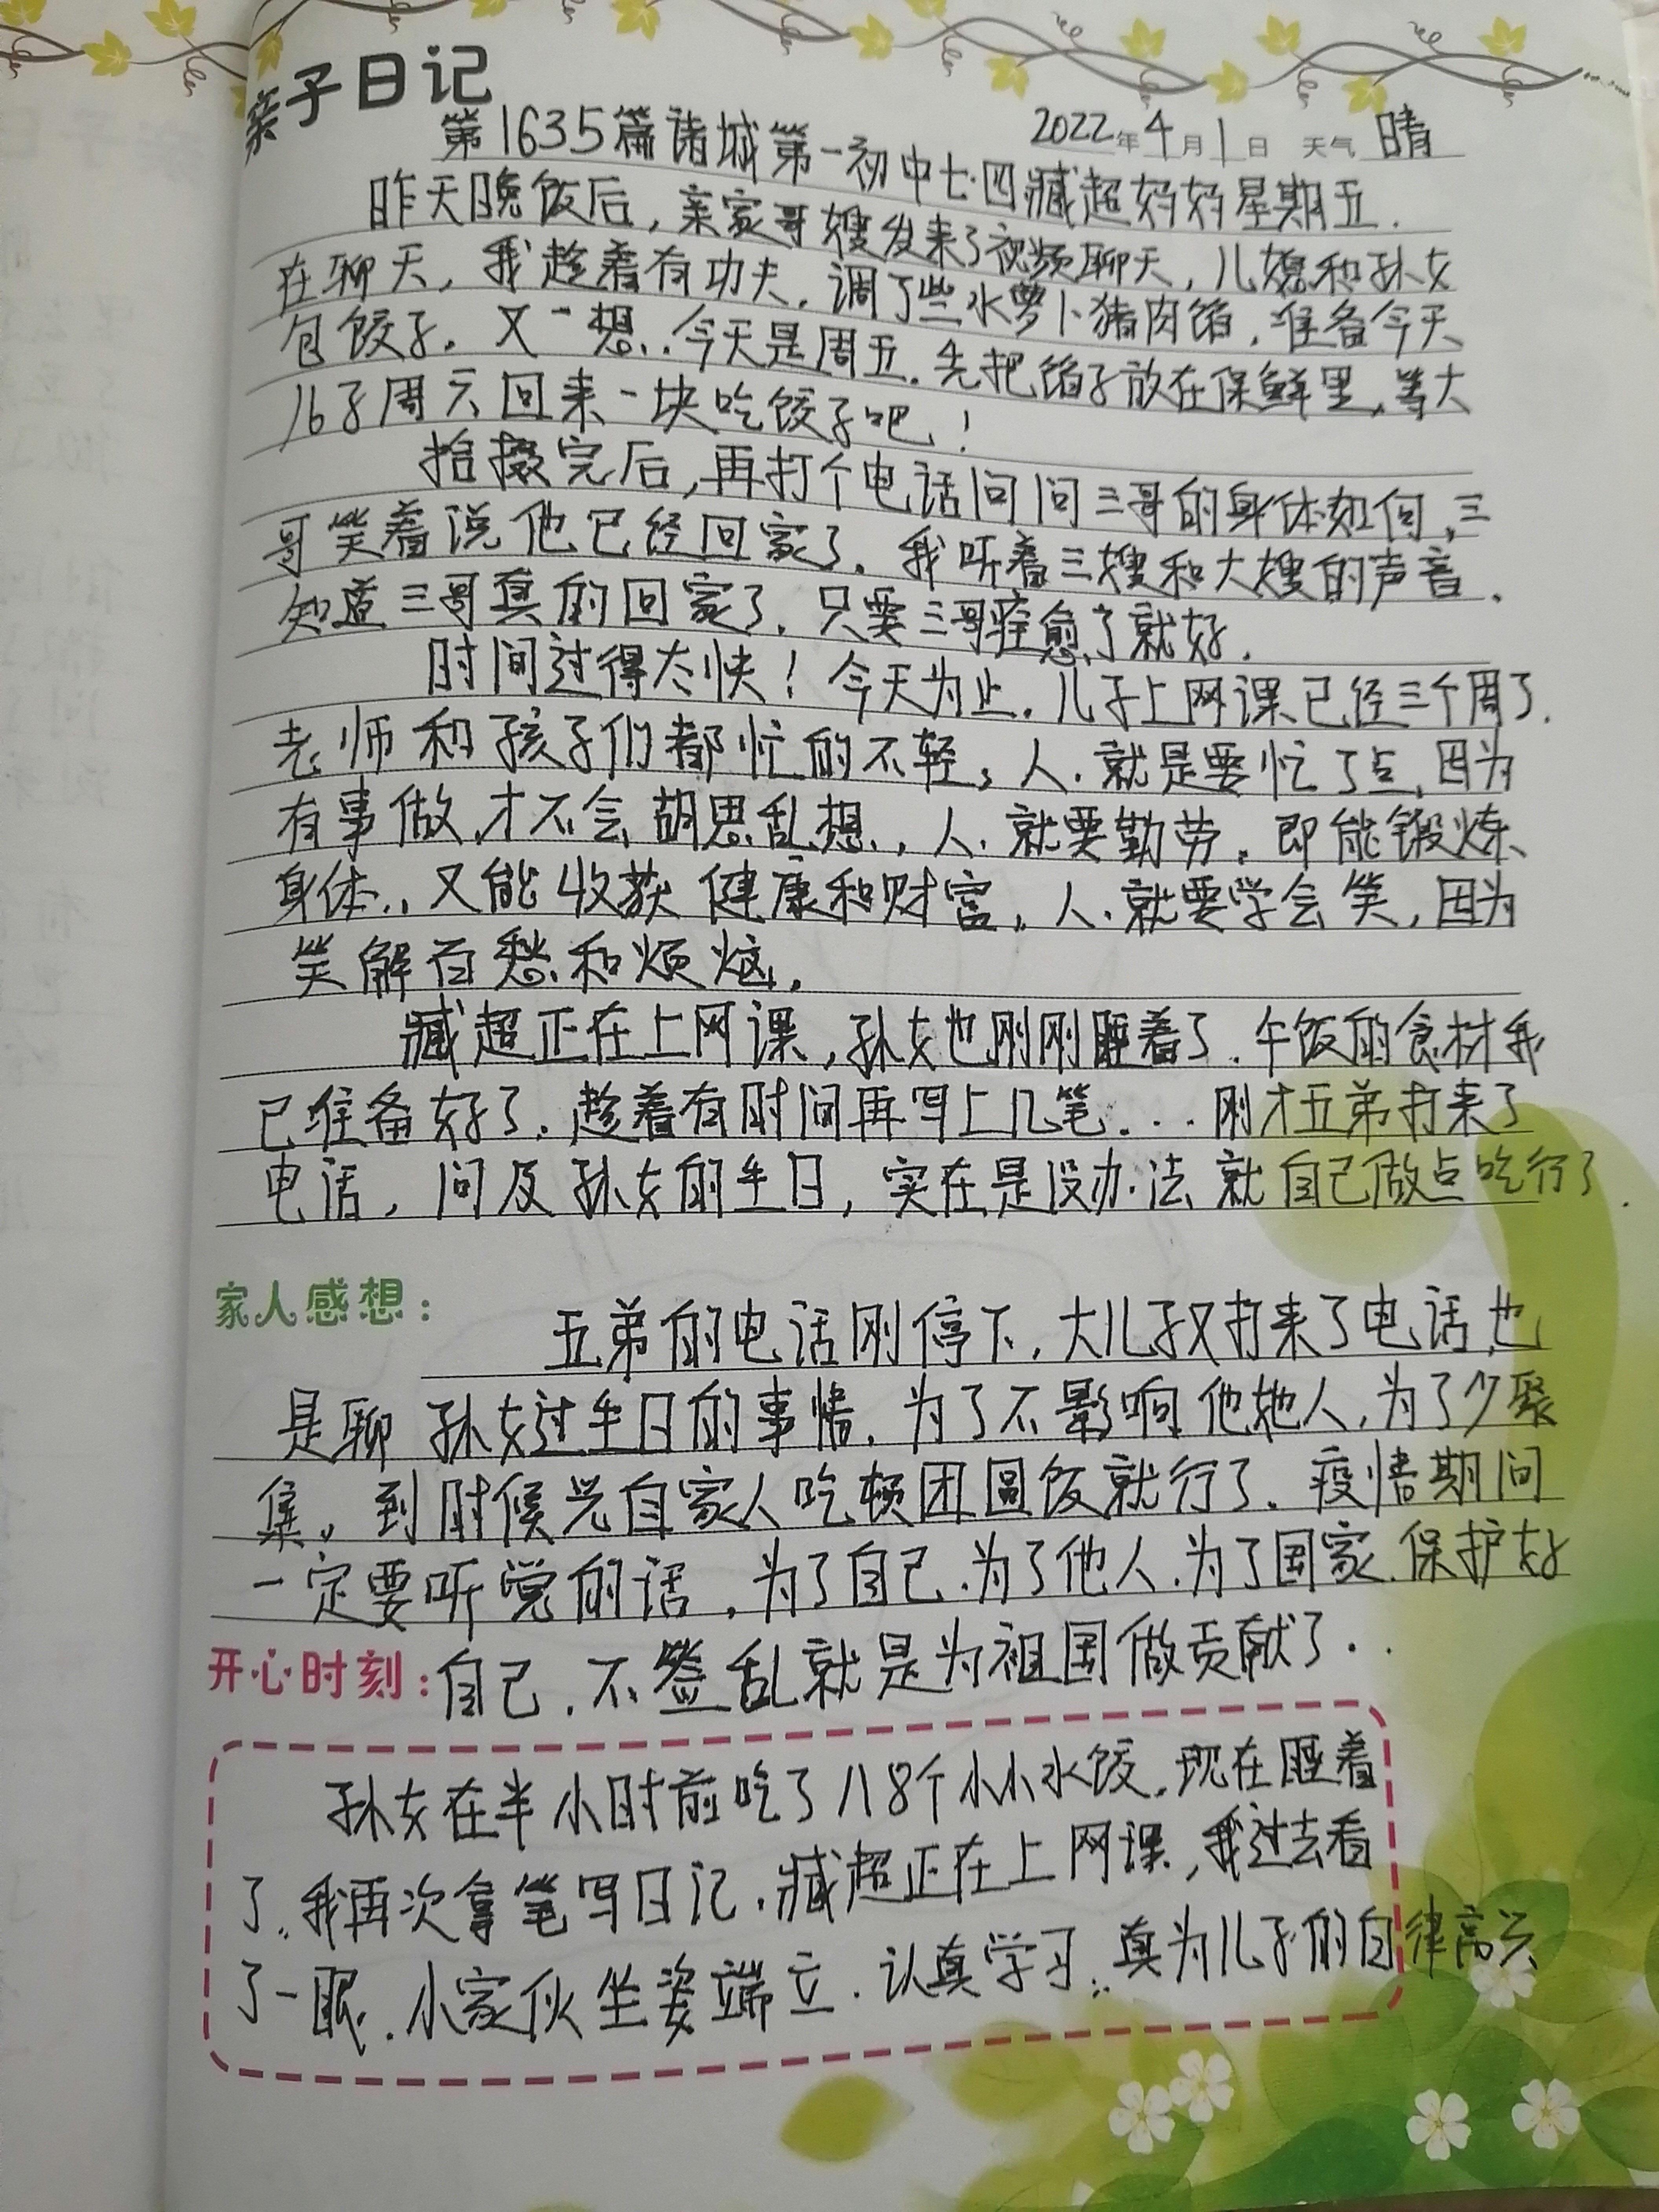 亲子日记
2022年4月1日 天气 晴
第1635篇诸城第一初中七.四臧超妈妈星期五.
昨天晚饭后,亲家哥嫂发来了视频聊天,儿媳和孙女
在聊天,我趁着有功夫,调了些水萝卜猪肉馅,准备今天
包饺子。又一想,今天是周五,先把馅子放在保鲜里,等大
儿子周六回来一块吃饺子吧!
拾掇完后,再打个电话问问三哥的身体如何,三
哥笑着说他已经回家了,我听着三嫂和大嫂的声音,
知道三哥真的回家了,只要三哥痊愈了就好.
时间过得太快!今天为止,儿子上网课已经三个周了.
老师和孩子们都忙的不轻,人,就是要忙了点,因为
有事做,才不会胡思乱想,人,就要勤劳,即能锻炼
身体,又能收获健康和财富,人,就要学会笑,因为
笑解百愁和烦恼.
臧超正在上网课,孙女也刚刚睡着了,午饭的食材我
已准备好了,趁着有时间再写上几笔...刚才五弟打来了
电话,问及孙女的生日,实在是没办法就自己做点吃行了.
家人感想:
五弟的电话刚停下,大儿子又打来了电话,也
是聊孙女过生日的事情,为了不影响他她人,为了少聚
集,到时候光自家人吃顿团圆饭就行了,疫情期间
一定要听党的话,为了自己,为了他人,为了国家,保护好
开心时刻:自己,不添乱就是为祖国做贡献了..
孙女在半小时前吃了八8个小小水饺,现在睡着
了,我再次拿笔写日记,臧超正在上网课,我过去看
了一眼,小家伙坐姿端立,认真学习,真为儿子的自律高兴